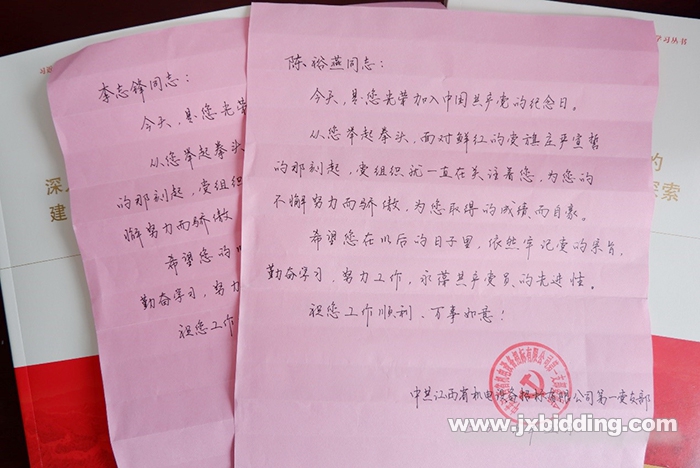 李志锋同志：
今天，是您光荣
从您举起拳头
的那刻起，党组织
懈努力而骄傲
希望您的以
勤奋学习，努力
祝您工作
陈裕燕同志：
今天，是您光荣加入中国共产党的纪念日。
从您举起拳头，面对鲜红的党旗庄严宣誓
的那刻起，党组织就一直在关注着您，为您的
不懈努力而骄傲，为您取得的成绩而自豪。
希望您在以后的日子里，依然牢记党的宗旨，
勤奋学习，努力工作，永葆共产党员的先进性。
祝您工作顺利、万事如意！
中共江西省机电设备招标有限公司第一党支部
www.jxbidding.com
习近
学习丛书
深
建
的
探索